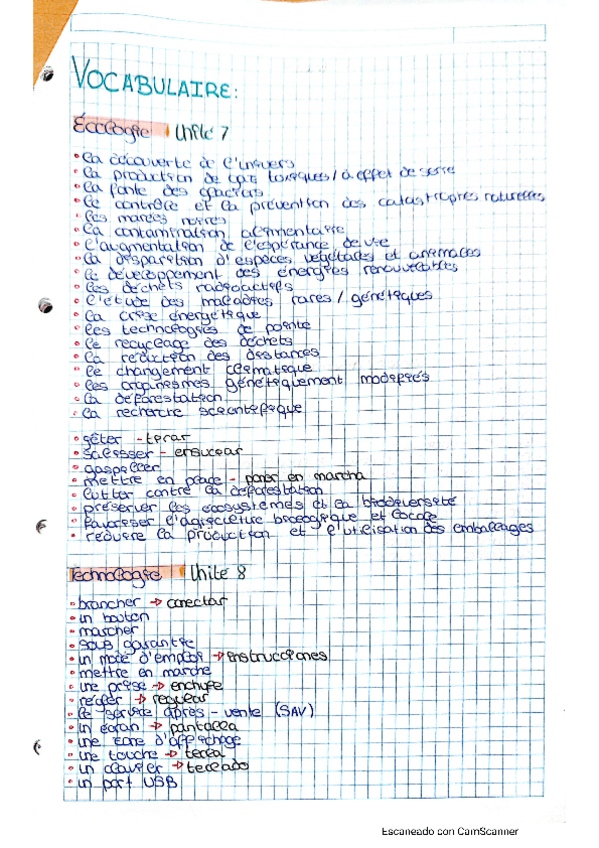 VOCABULAIRE:
Écologie Unité 7
• la découverte de l'univers
• la production de gaz toxiques / à effet de serre
• la fonte des glaciars
• le contrôle et la prévention des catastrophes naturelles
• les marées noires
• la contamination alimentaire
• l'augmentation de l'espérance de vie
• la disparition d'espèces végétales et animales
• le développement des énergies renouvelables
• les déchets radioactifs
• l'étude des maladies rares / génétiques
• la crise énergétique
• les technologies de pointe
• le recyclage des déchets
• la réduction des distances
• le changement climatique
• les organismes génétiquement modifiés
• la déforestation
• la recherche scientifique
• jéter - tirar
• salissser - ensuciar
• gaspiller
• mettre en place - poner en marcha
• lutter contre la déforestation
• préserver les ecosystèmes et la biodiversité
• favoriser l'agriculture biologique et locale
• réduire la production et l'utilisation des emballages
Technologie Unité 8
• brancher → conectar
• un bouton
• marcher
• sous garantie
• un mode d'emploi → instrucciones
• mettre en marche
• une prise → enchufe
• régler → regular
• le service après - vente (SAV)
• un écran → pantalla
• une d'affichage
• une touche → tecla
• un clavier → teclado
• un port USB
Escaneado con CamScanner